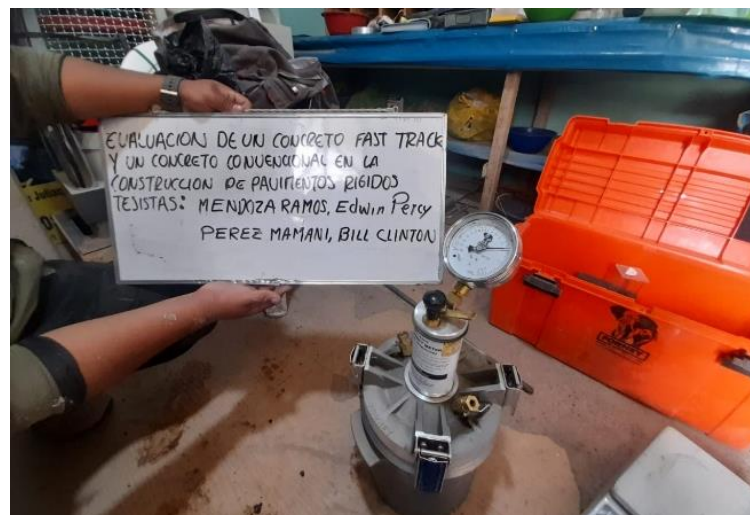 EVALUACION DE UN CONCRETO FAST TRACK
Y UN CONCRETO CONVENCIONAL EN LA
CONSTRUCCION DE PAVIMENTOS RIGIDOS
TESISTAS: MENDOZA RAMOS, Edwin Percy
PEREZ MAMANI, BILL CLINTON